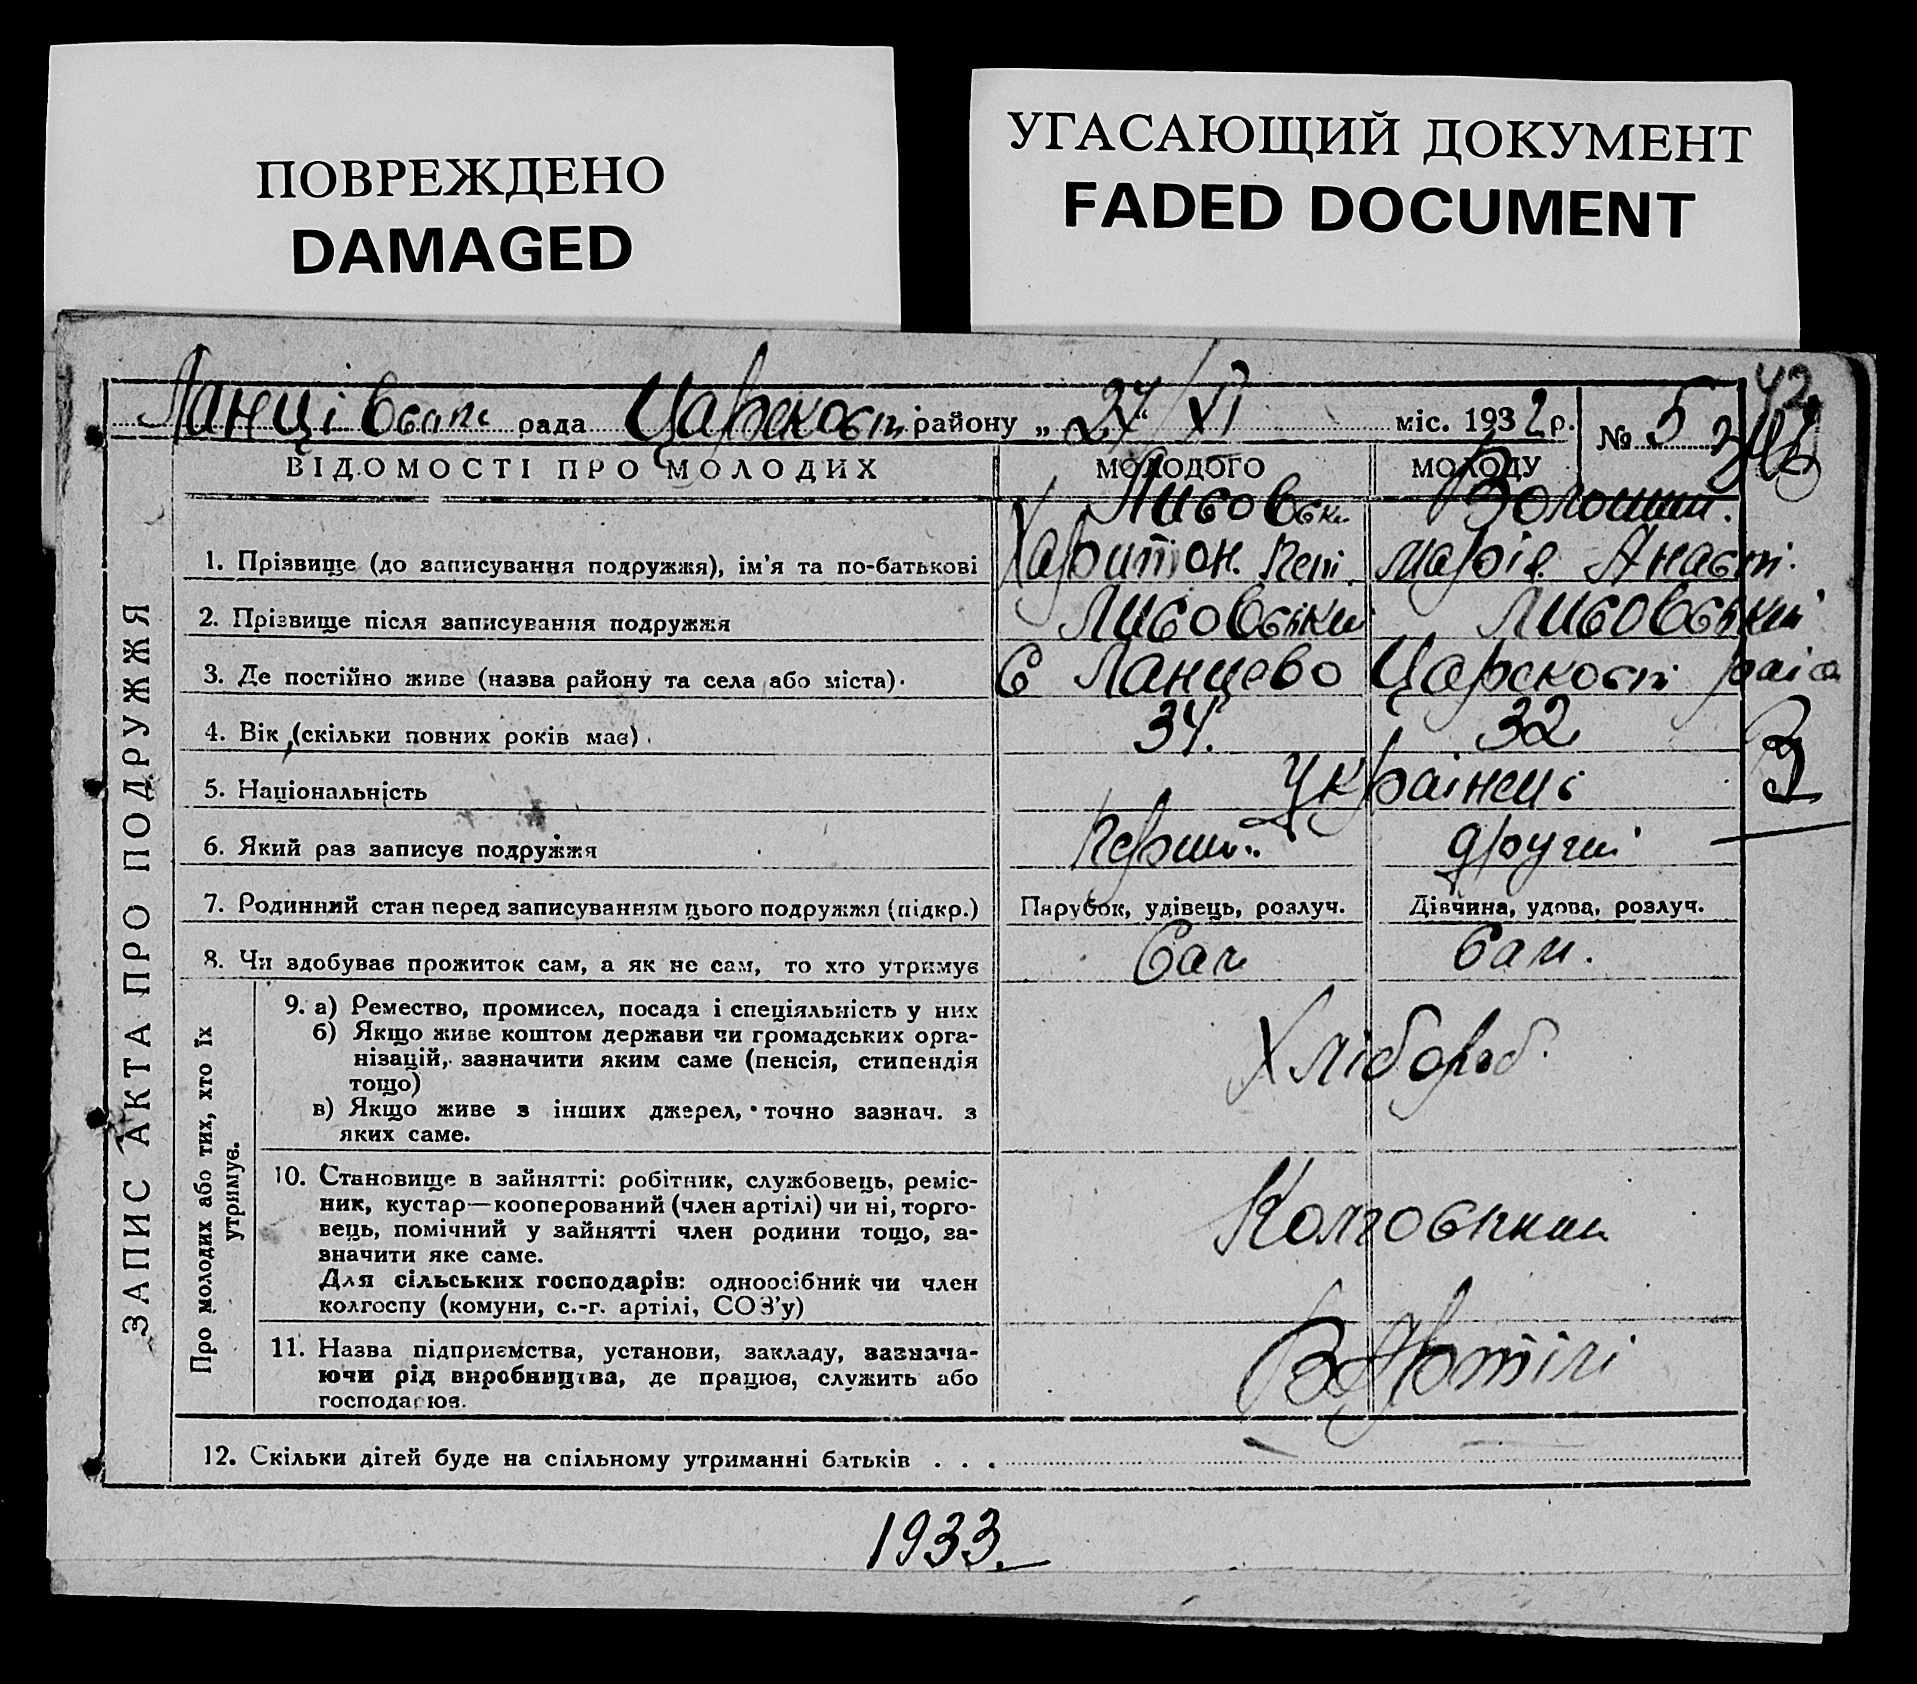 ПОВРЕЖДЕНО
DAMAGED
УГАСАЮЩИЙ ДОКУМЕНТ
FADED DOCUMENT
42
рада района „24" XI міс. 1932 р. № 5
ВІДОМОСТІ ПРО МОЛОДИХ МОЛОДОГО МОЛОДУ
Волошин.
1. Прізвище (до записування подружжя), ім'я та по-батькові Харитон. Марія
2. Прізвище після записування подружжя Лисовськи Лисовський
3. Де постійно живе (назва району та села або міста). с Ланцево
4. Вік (скільки повних років має). 34. 32
5. Національність українець
6. Який раз записує подружжя другий
7. Родинний стан перед записуванням цього подружжя (підкр.) Парубок, удівець, розлуч. Дівчина, удова, розлуч.
8. Чи здобуває прожиток сам, а як не сам, то хто утримує Сам Сам.
ЗАПИС АКТА ПРО ПОДРУЖЖЯ
Про молодих або тих, хто їх
утримує.
9. а) Ремество, промисел, посада і спеціяльність у них
б) Якщо живе коштом держави чи громадських орга-
нізацій, зазначити яким саме (пенсія, стипендія
тощо)
в) Якщо живе з інших джерел, точно зазнач. з
яких саме.
Хлібороб.
10. Становище в зайнятті: робітник, службовець, реміс-
ник, кустар—кооперований (член артілі) чи ні, торго-
вець, помічний у зайнятті член родини тощо, за-
значити яке саме.
Для сільських господарів: одноосібник чи член
колгоспу (комуни, с.-г. артілі, СОЗ'у)
11. Назва підприємства, установи, закладу, зазнача-
ючи рід виробництва, де працює, служить або
господарює.
В Артілі
12. Скільки дітей буде на спільному утриманні батьків . . .
1933.